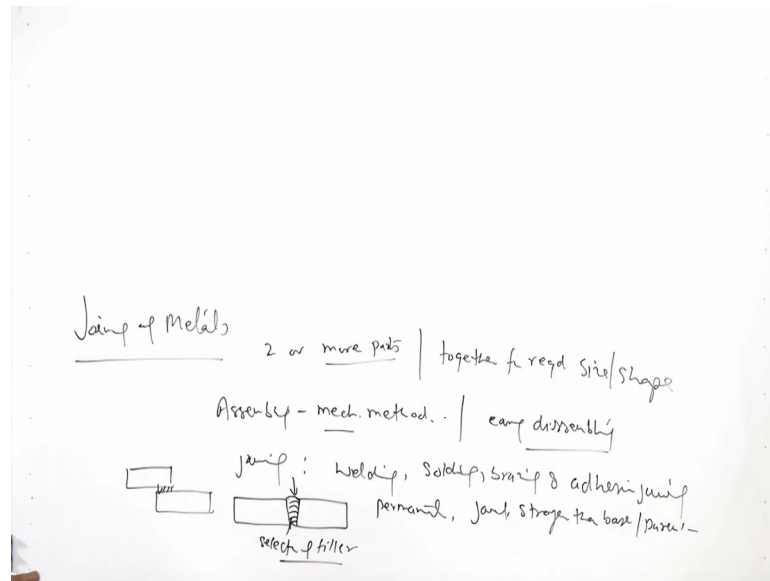 Joining of Metals
2 or more parts | together for reqd size/shape
Assembly - mech. method. | easy dissembly
joining : welding, soldig, brazing & adhesive joining
permanent, joint stronger than base/parent
select of filler